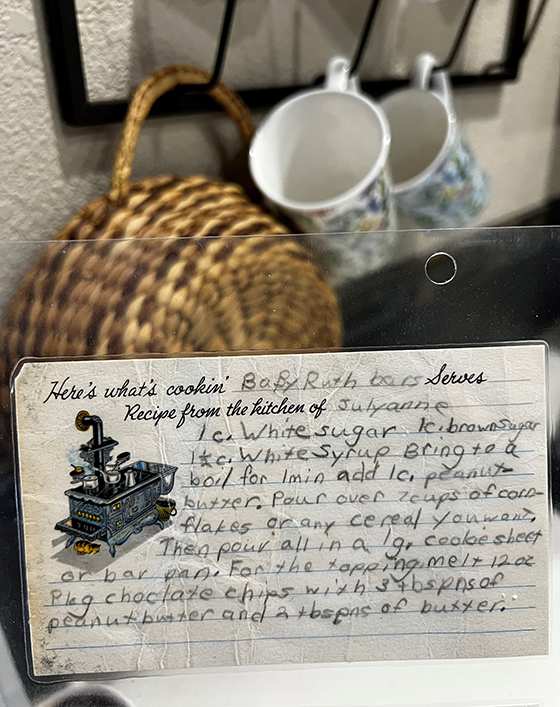 Here's what's cookin' Baby Ruth bars Serves
Recipe from the kitchen of Julyanne
1c. White sugar 1c. brown sugar
White Syrup Bring to a
boil for 1 min add 1c. peanut
butter. Pour over 7cups of corn-
flakes or any cereal you want.
Then pour all in a lg. cookie sheet
or bar pan. For the topping melt 12 oz
Pkg choclate chips with 3 tbspns of
peanut butter and 2 tbspns of butter.